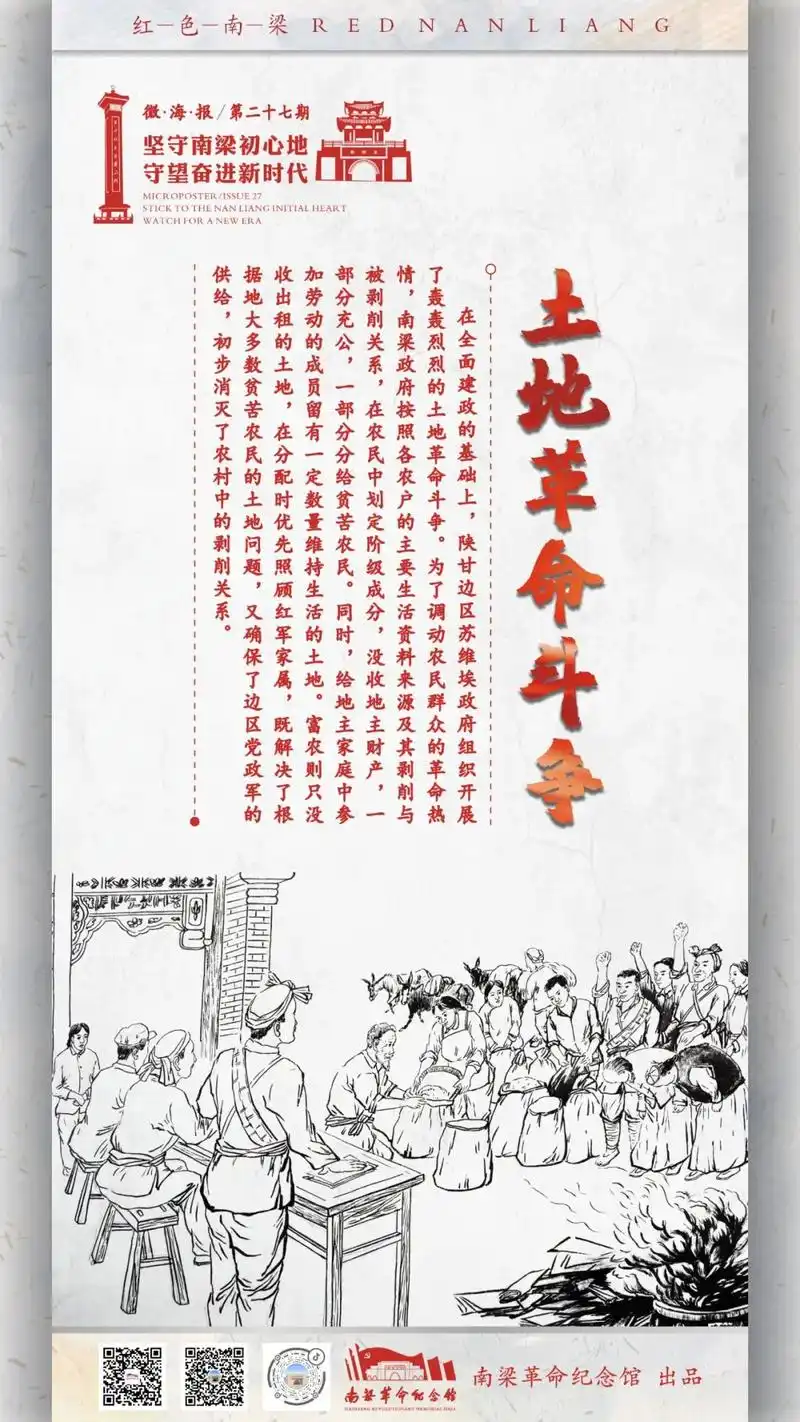 红一色一南一梁 RED NAN LIANG
微·海·报/第二十七期
坚守南梁初心地
守望奋进新时代
MICROPOSTER/ISSUE 27
STICK TO THE NAN LIANG INITIAL HEART
WATCH FOR A NEW ERA
土地革命斗争
在全面建政的基础上，陕甘边区苏维埃政府组织开展
了轰轰烈烈的土地革命斗争。为了调动农民群众的革命热
情，南梁政府按照各农户的主要生活资料来源及其剥削与
被剥削关系，在农民中划定阶级成分，没收地主财产，一
部分充公，一部分分给贫苦农民。同时，给地主家庭中参
加劳动的成员留有一定数量维持生活的土地。富农则只没
收出租的土地，在分配时优先照顾红军家属，既解决了根
据地大多数贫苦农民的土地问题，又确保了边区党政军的
供给，初步消灭了农村中的剥削关系。
南梁革命纪念馆
NANLIANG REVOLUTIONARY MEMORIAL HALL
南梁革命纪念馆 出品